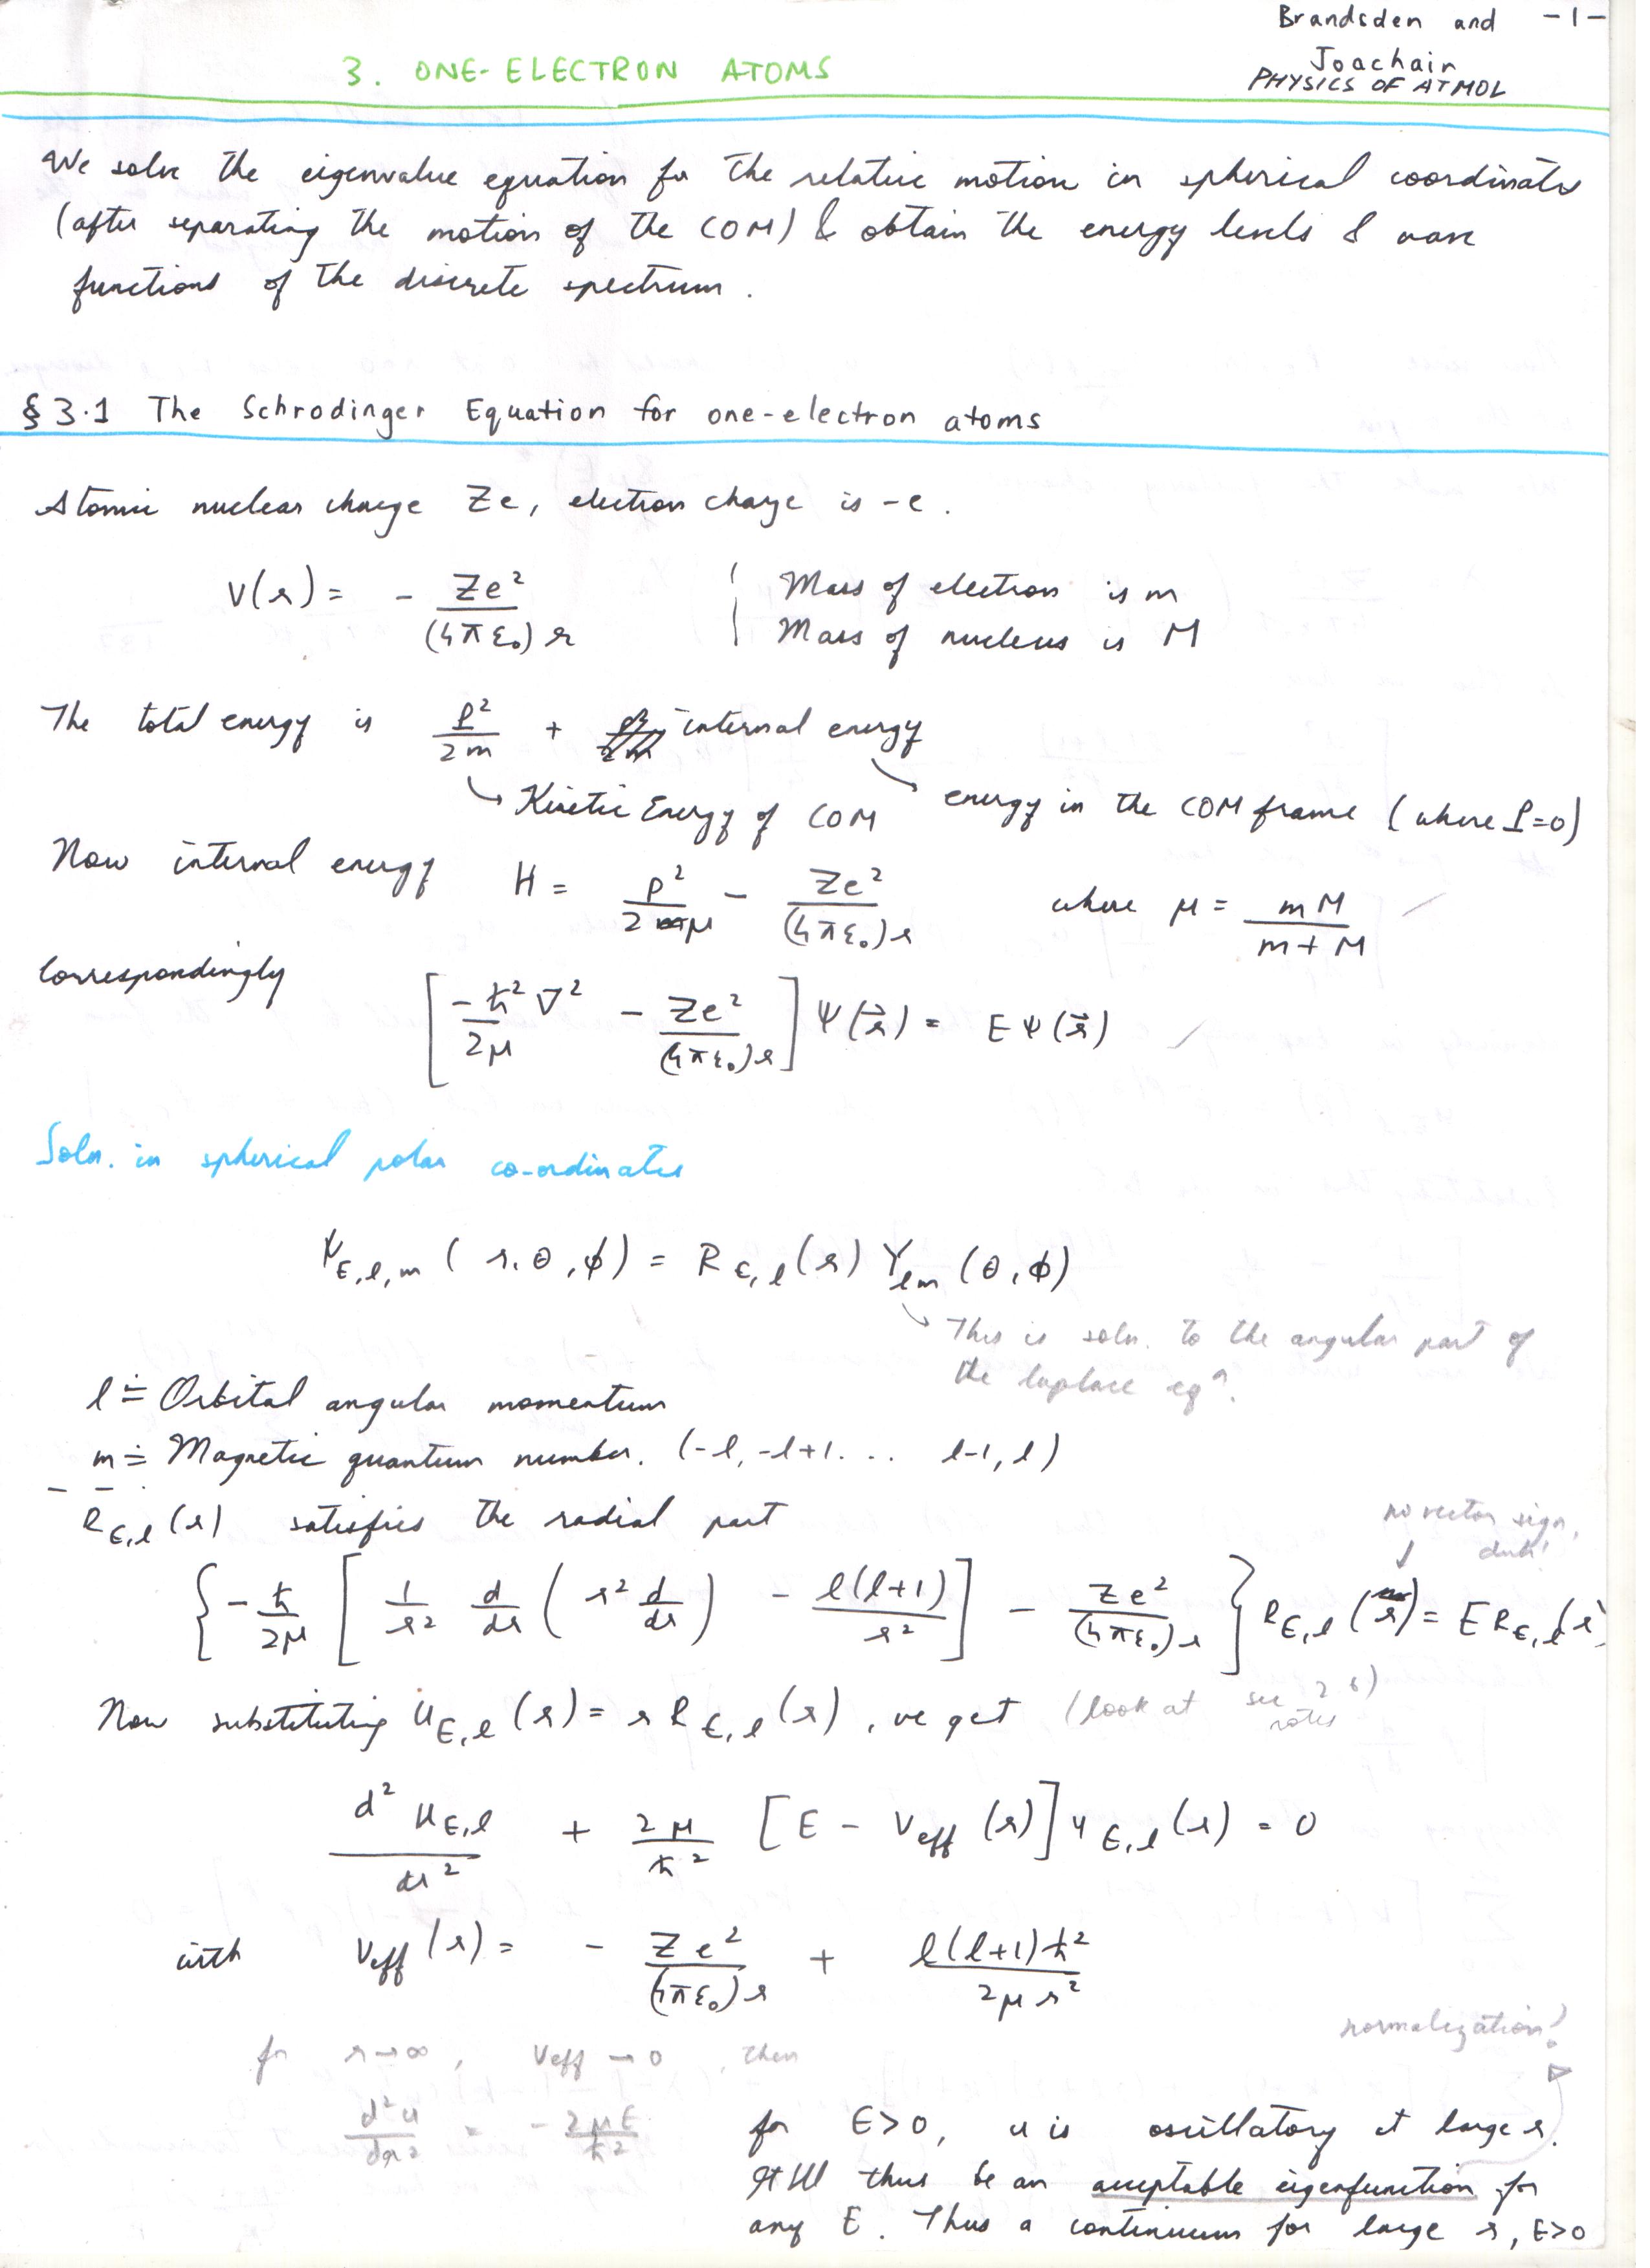 Brandsden and -1-
Joachain
PHYSICS OF ATMOL
3. ONE-ELECTRON ATOMS
We solve the eigenvalue equation for the relative motion in spherical coordinates
(after separating the motion of the COM) & obtain the energy levels & wave
functions of the discrete spectrum.
§3.1 The Schrodinger Equation for one-electron atoms
Atomic nuclear charge Ze, electron charge is -e.
V(r) = - Ze² / (4πε₀) r | Mass of electron is m
| Mass of nucleus is M
The total energy is P²/2m + internal energy
↳ Kinetic Energy of COM ↘ energy in the COM frame (where P=0)
Now internal energy H = p²/2μ - Ze²/(4πε₀)r where μ = mM/(m+M)
Correspondingly
[-ħ²/2μ ∇² - Ze²/(4πε₀)r] ψ(r⃗) = E ψ(r⃗)
Soln. in spherical polar co-ordinates
ψ_{E,l,m} (r,θ,φ) = R_{E,l}(r) Y_{lm}(θ,φ)
↳ This is soln. to the angular part of
the laplace eqⁿ.
l ≐ Orbital angular momentum
m ≐ Magnetic quantum number. (-l, -l+1. .. l-1, l)
R_{E,l}(r) satisfies the radial part
no vector sign,
duh!
{-ħ/2μ [1/r² d/dr (r² d/dr) - l(l+1)/r²] - Ze²/(4πε₀)r} R_{E,l}(r) = E R_{E,l}(r)
Now substituting u_{E,l}(r) = r R_{E,l}(r), we get (look at sec 2.6)
notes
d² u_{E,l}/dr² + 2μ/ħ² [E - V_eff(r)] u_{E,l}(r) = 0
with V_eff(r) = - Ze²/(4πε₀)r + l(l+1)ħ²/2μr²
for r→∞, V_eff → 0, then
normalization?
d²u/dr² = - 2μE/ħ²
for E>0, u is oscillatory at large r.
It'll thus be an acceptable eigenfunction for
any E. Thus a continuum for large r, E>0